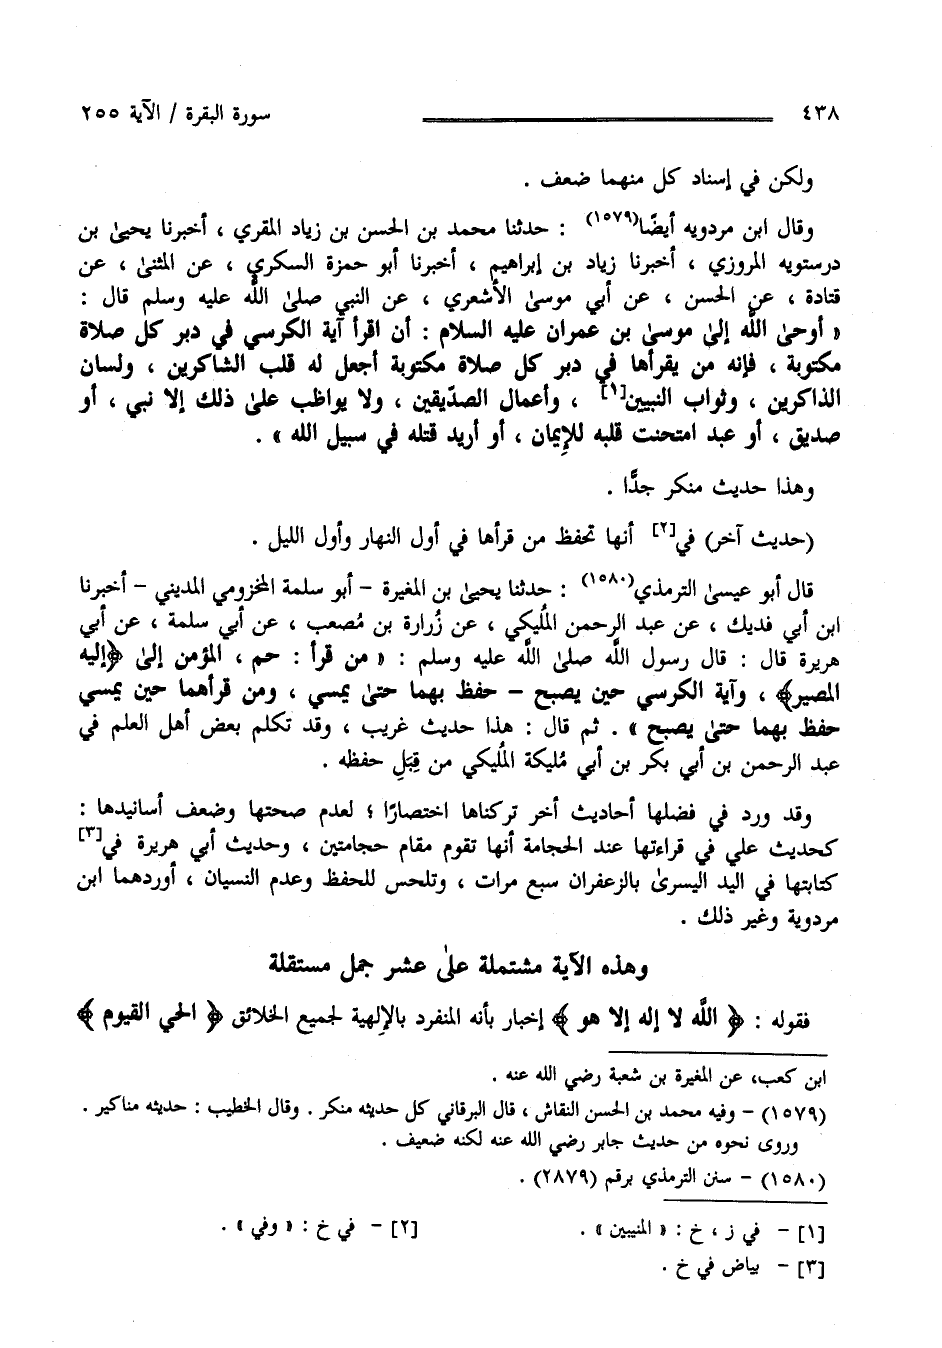 ٤٣٨ سورة البقرة / الآية ٢٥٥
ولكن في إسناد كل منهما ضعف .
وقال ابن مردويه أيضًا(١٥٧٩) : حدثنا محمد بن الحسن بن زياد المقري ، أخبرنا يحيىٰ بن
درستويه المروزي ، أخبرنا زياد بن إبراهيم ، أخبرنا أبو حمزة السكري ، عن المثنىٰ ، عن
قتادة ، عن الحسن ، عن أبي موسىٰ الأشعري ، عن النبي صلىٰ اللَّه عليه وسلم قال :
« أوحىٰ اللَّه إلىٰ موسىٰ بن عمران عليه السلام : أن اقرأ آية الكرسي في دبر كل صلاة
مكتوبة ، فإنه من يقرأها في دبر كل صلاة مكتوبة أجعل له قلب الشاكرين ، ولسان
الذاكرين ، وثواب النبيين[١] ، وأعمال الصدّيقين ، ولا يواظب علىٰ ذلك إلا نبي ، أو
صديق ، أو عبد امتحنت قلبه للإيمان ، أو أريد قتله في سبيل الله » .
وهذا حديث منكر جدًّا .
(حديث آخر) في[٢] أنها تحفظ من قرأها في أول النهار وأول الليل .
قال أبو عيسىٰ الترمذي(١٥٨٠) : حدثنا يحيىٰ بن المغيرة – أبو سلمة المخزومي المديني – أخبرنا
ابن أبي فديك ، عن عبد الرحمن المُليكي ، عن زُرارة بن مُصعب ، عن أبي سلمة ، عن أبي
هريرة قال : قال رسول اللَّه صلىٰ اللَّه عليه وسلم : « من قرأ : حم ، المؤمن إلىٰ ﴿إليه
المصير﴾ ، وآية الكرسي حين يصبح – حفظ بهما حتىٰ يمسي ، ومن قرأهما حين يمسي
حفظ بهما حتىٰ يصبح » . ثم قال : هذا حديث غريب ، وقد تكلم بعض أهل العلم في
عبد الرحمن بن أبي بكر بن أبي مُليكة المُليكي من قِبَلِ حفظه .
وقد ورد في فضلها أحاديث أخر تركناها اختصارًا ؛ لعدم صحتها وضعف أسانيدها :
كحديث علي في قراءتها عند الحجامة أنها تقوم مقام حجامتين ، وحديث أبي هريرة في[٣]
كتابتها في اليد اليسرىٰ بالزعفران سبع مرات ، وتلحس للحفظ وعدم النسيان ، أوردهما ابن
مردوية وغير ذلك .
وهذه الآية مشتملة علىٰ عشر جمل مستقلة
فقوله : ﴿ اللَّه لا إله إلا هو ﴾ إخبار بأنه المنفرد بالإلهية لجميع الخلائق ﴿ الحي القيوم ﴾
ابن كعب، عن المغيرة بن شعبة رضي الله عنه .
(١٥٧٩) – وفيه محمد بن الحسن النقاش ، قال البرقاني كل حديثه منكر . وقال الخطيب : حديثه مناكير .
وروى نحوه من حديث جابر رضي الله عنه لكنه ضعيف .
(١٥٨٠) – سنن الترمذي برقم (٢٨٧٩) .
[١] – في ز ، خ : « المنيبين » . [٢] – في خ : « وفي » .
[٣] – بياض في خ .